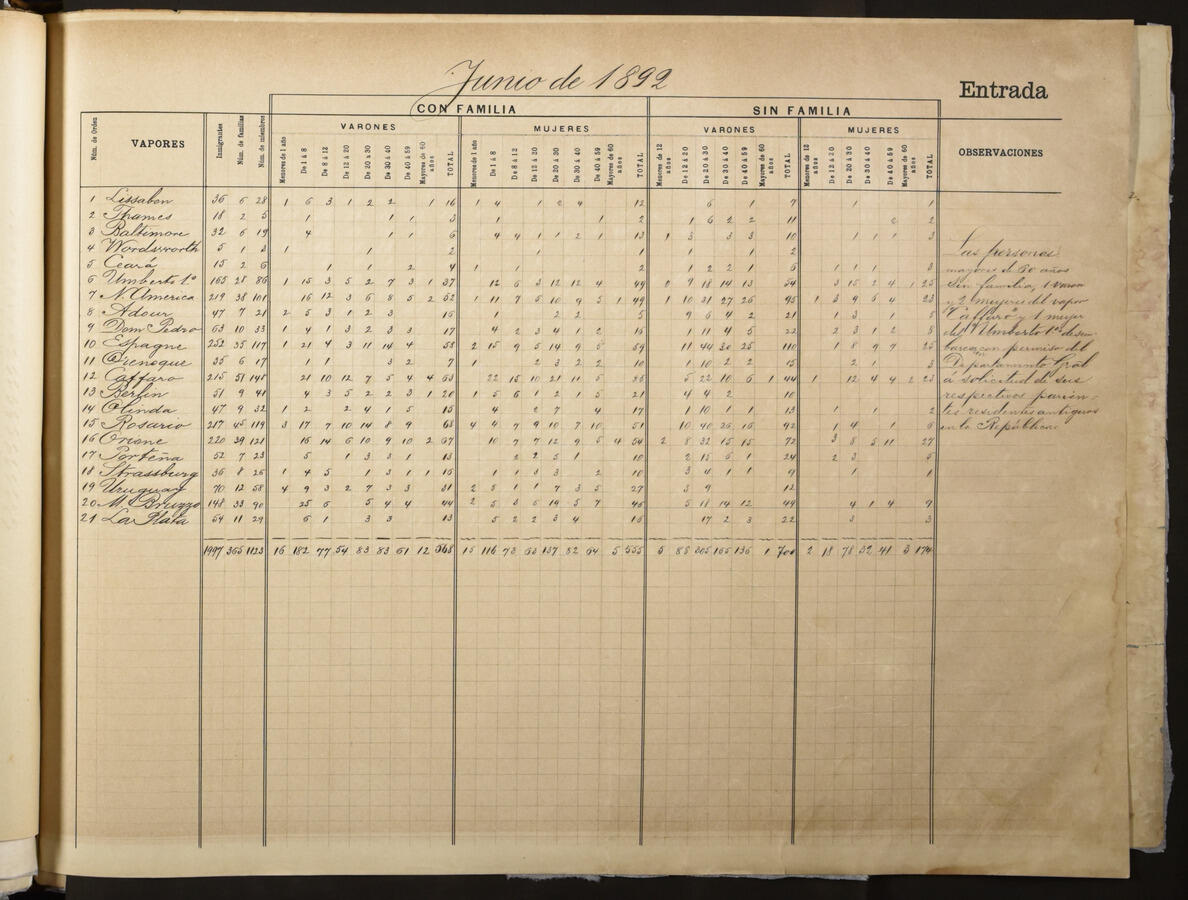 Junio de 1892
Entrada
CON FAMILIA SIN FAMILIA
VARONES MUJERES VARONES MUJERES
Núm. de Orden VAPORES Inmigrantes Núm. de familias Núm. de miembros Menores de 1 año De 1 á 8 De 8 á 12 De 12 á 20 De 20 á 30 De 30 á 40 De 40 á 59 Mayores de 60 años TOTAL Menores de 1 año De 1 á 8 De 8 á 12 De 12 á 20 De 20 á 30 De 30 á 40 De 40 á 59 Mayores de 60 años TOTAL Menores de 12 años De 12 á 20 De 20 á 30 De 30 á 40 De 40 á 59 Mayores de 60 años TOTAL Menores de 12 De 12 á 20 De 20 á 30 De 30 á 40 De 40 á 59 Mayores de 60 años TOTAL OBSERVACIONES
1 Lissabon 36 6 28 1 6 3 1 2 2 1 16 1 4 1 2 4 12 6 1 7 1 1
2 Thames 18 2 5 1 1 1 3 1 1 2 1 6 2 2 11
3 Baltimore 32 6 19 4 1 1 6 4 4 1 1 2 1 13 1 3 3 3 10 1 1 1 3
4 Wordsworth 5 1 3 1 1 2 1 1 1 1 2
5 Ceará 15 2 6 1 1 2 4 1 1 2 1 2 2 1 6 1 1 1 3
6 Umberto 1º 165 28 86 1 15 3 5 2 7 3 1 37 12 6 3 12 12 4 49 9 18 14 13 54 3 15 2 4 1 25
7 N. America 219 38 101 16 12 3 6 8 5 2 52 1 11 7 5 10 9 5 1 49 1 10 31 27 26 95 1 3 9 6 4 23
8 Adour 47 7 21 2 5 3 1 2 3 16 1 2 2 5 9 6 4 2 21 1 3 1 5
9 Dom Pedro 63 10 33 1 4 1 3 2 3 3 17 4 2 3 4 1 2 16 1 11 4 5 22 2 3 1 2 8
10 Espagne 252 35 117 1 21 4 3 11 14 4 58 2 15 9 5 14 9 5 59 11 44 30 25 110 1 8 9 7 25
11 Orenoque 35 6 17 1 1 3 2 7 1 2 3 2 2 10 1 10 2 2 15 2 1 3
12 Caffaro 215 51 148 21 10 12 7 5 4 4 63 22 15 10 21 11 5 85 5 22 10 6 1 44 1 12 4 4 2 23
13 Berlin 51 9 41 4 3 5 2 2 3 1 20 1 5 6 1 2 1 5 21 4 4 2 10
14 Olinda 47 9 32 1 2 2 4 1 5 15 4 2 7 4 17 1 10 1 1 13 1 1 2
15 Rosario 217 45 119 3 17 7 10 14 8 9 68 4 4 7 9 10 7 10 51 10 40 26 16 92 1 4 1 6
16 Orione 220 39 121 16 14 6 10 9 10 2 67 10 7 7 12 9 5 4 54 2 8 32 15 15 72 3 8 5 11 27
17 Porteña 52 7 23 5 1 3 3 1 13 2 2 5 1 10 2 15 6 1 24 2 3 5
18 Strassburg 36 8 26 1 4 5 1 3 1 1 16 1 1 3 3 2 10 3 4 1 1 9 1 1
19 Uruguay 70 12 58 4 9 3 2 7 3 3 31 2 8 1 1 7 3 5 27 3 9 12
20 M. Bruzzo 148 33 90 25 6 5 4 4 44 2 5 3 6 14 5 7 46 5 18 14 12 49 4 1 4 9
21 La Plata 54 11 29 6 1 3 3 13 5 2 2 3 4 16 17 2 3 22 3 3
1997 365 1123 16 182 77 54 83 83 61 12 568 15 116 73 63 137 82 64 5 555 5 88 305 165 136 1 700 2 18 78 32 41 3 174
Las personas
mayores de 60 años
sin familia, 1 varon
y 2 mujeres del vapor
"Caffaro" y 1 mujer
del "Umberto 1º" desem
barcan con permiso del
Departamento Gral
á solicitud de sus
respectivos parien-
tes residentes antiguos
en la República